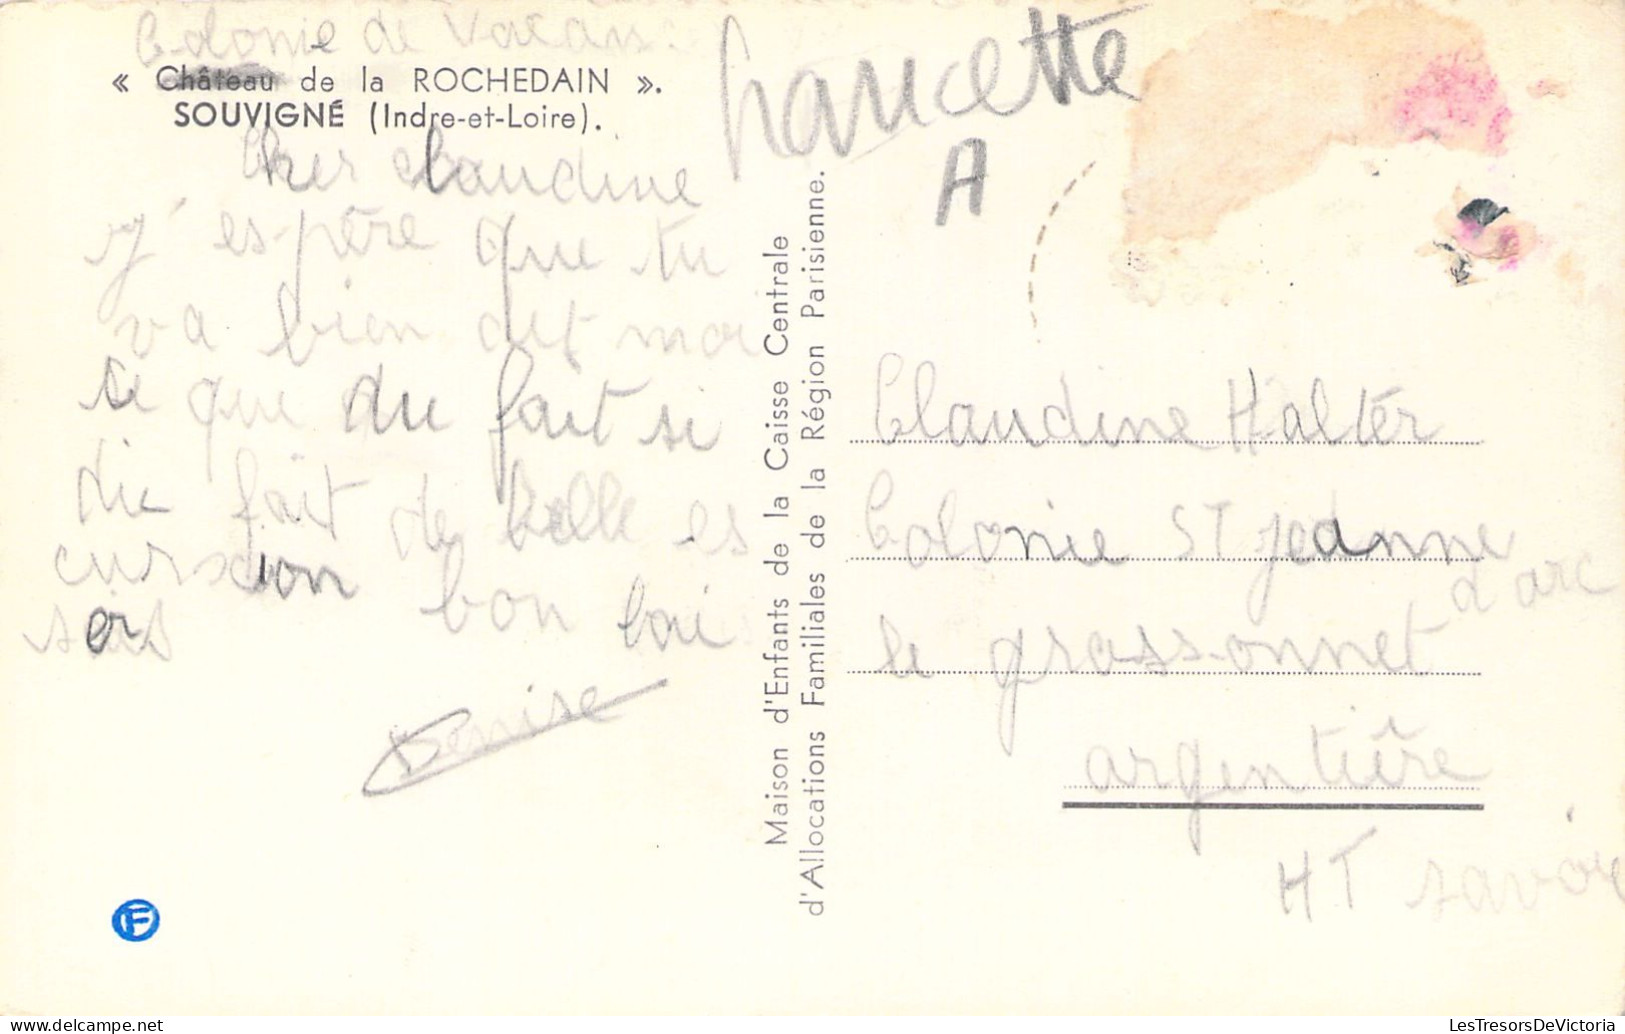 Colonie de Vacan
« Château de la ROCHEDAIN ».
SOUVIGNÉ (Indre-et-Loire).
Cher Claudine
j'espère que tu
va bien dit moi
se que du fait si
du fait de belle es
curscion bon bai
sers
Denise
Maison d'Enfants de la Caisse Centrale
d'Allocations Familiales de la Région Parisienne.
Francette
A
Claudine Halter
Colonie ST jeanne
d'arc
le grassonnet
argentière
HT savoie
F
LesTresorsDeVictoria